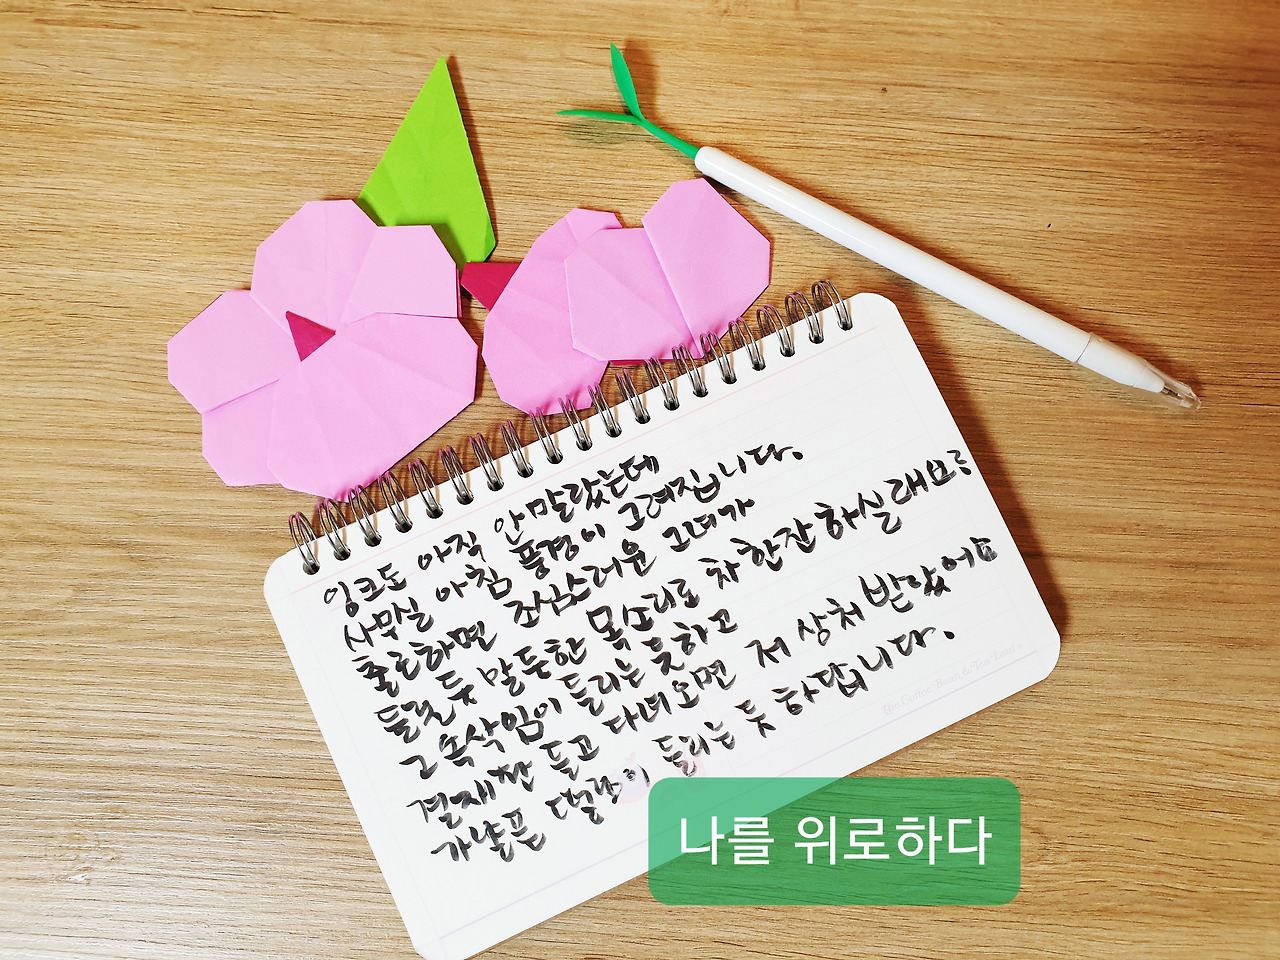 잉크도 아직 안말랐는데
사무실 아침 풍경이 그려집니다.
출근하면 조심스러운 그녀가
들릴듯 말듯한 목소리로 차 한잔 하실래요?
그 속삭임이 들리는 듯하고
결재판 들고 다녀오면 저 상처 받았어요
가냘픈 떨림이 들리는 듯 하답니다.
The Coffee Bean & Tea Leaf
나를 위로하다